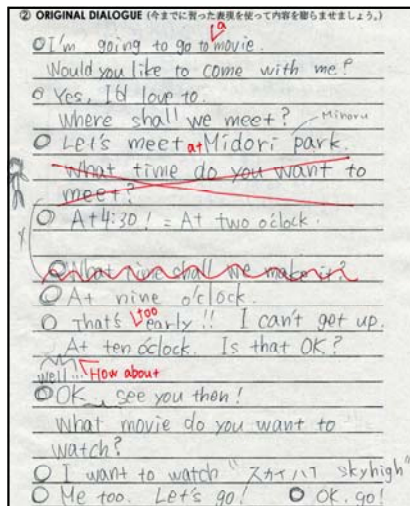 ② ORIGINAL DIALOGUE (今までに習った表現を使って内容を膨らませましょう。)
a
I'm going to go to movie.
Would you like to come with me?
Yes, I'd love to.
Where shall we meet?
Minoru
Let's meet at Midori park.
What time do you want to
meet?
At 4:30! = At two o'clock.
What nine shall we make it?
At nine o'clock.
That's too early!! I can't get up.
At ten o'clock. Is that OK?
well... How about
OK see you then!
What movie do you want to
watch?
I want to watch "スカイハイ skyhigh"
Me too. Let's go! OK. go!